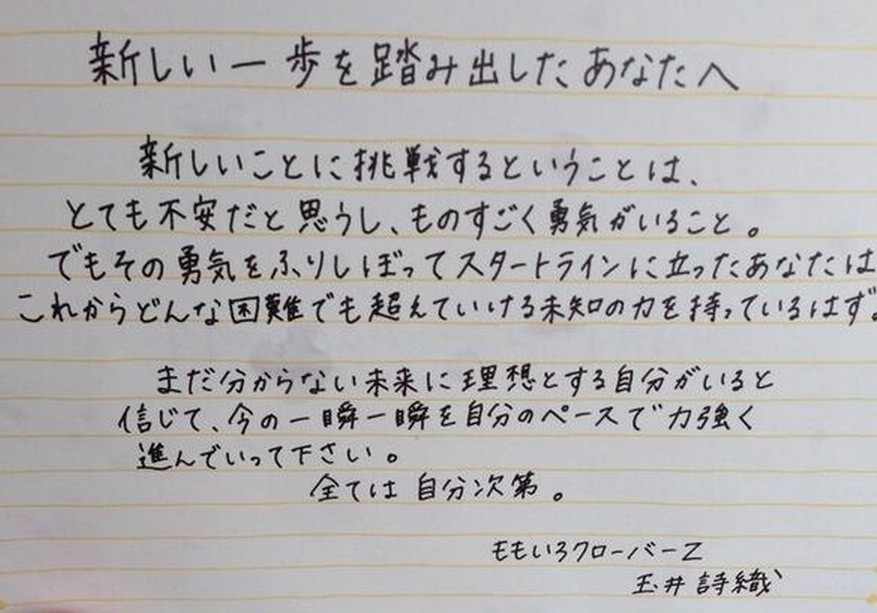 新しい一歩を踏み出したあなたへ
新しいことに挑戦するということは、
とても不安だと思うし、ものすごく勇気がいること。
でもその勇気をふりしぼってスタートラインに立ったあなたは
これからどんな困難でも超えていける未知の力を持っているはず。
まだ分からない未来に理想とする自分がいると
信じて、今の一瞬一瞬を自分のペースで力強く
進んでいって下さい。
全ては自分次第。
ももいろクローバーZ
玉井詩織